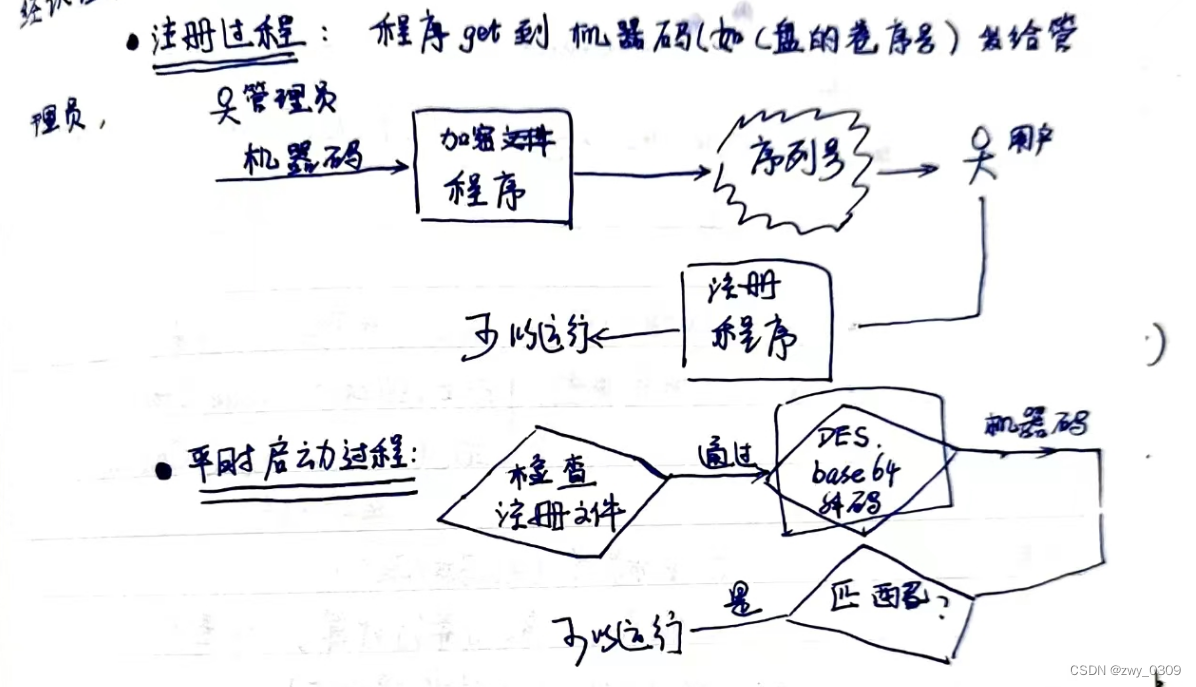 • 注册过程： 程序get到 机器码(如C盘的卷序号) 发给管
理员，
管理员
机器码
加密文件
程序
序列号
用户
注册
程序
可以运行
• 平时启动过程：
检查
注册文件
通过
DES.
base64
解码
机器码
匹配？
是
可以运行
CSDN @zwy_0309